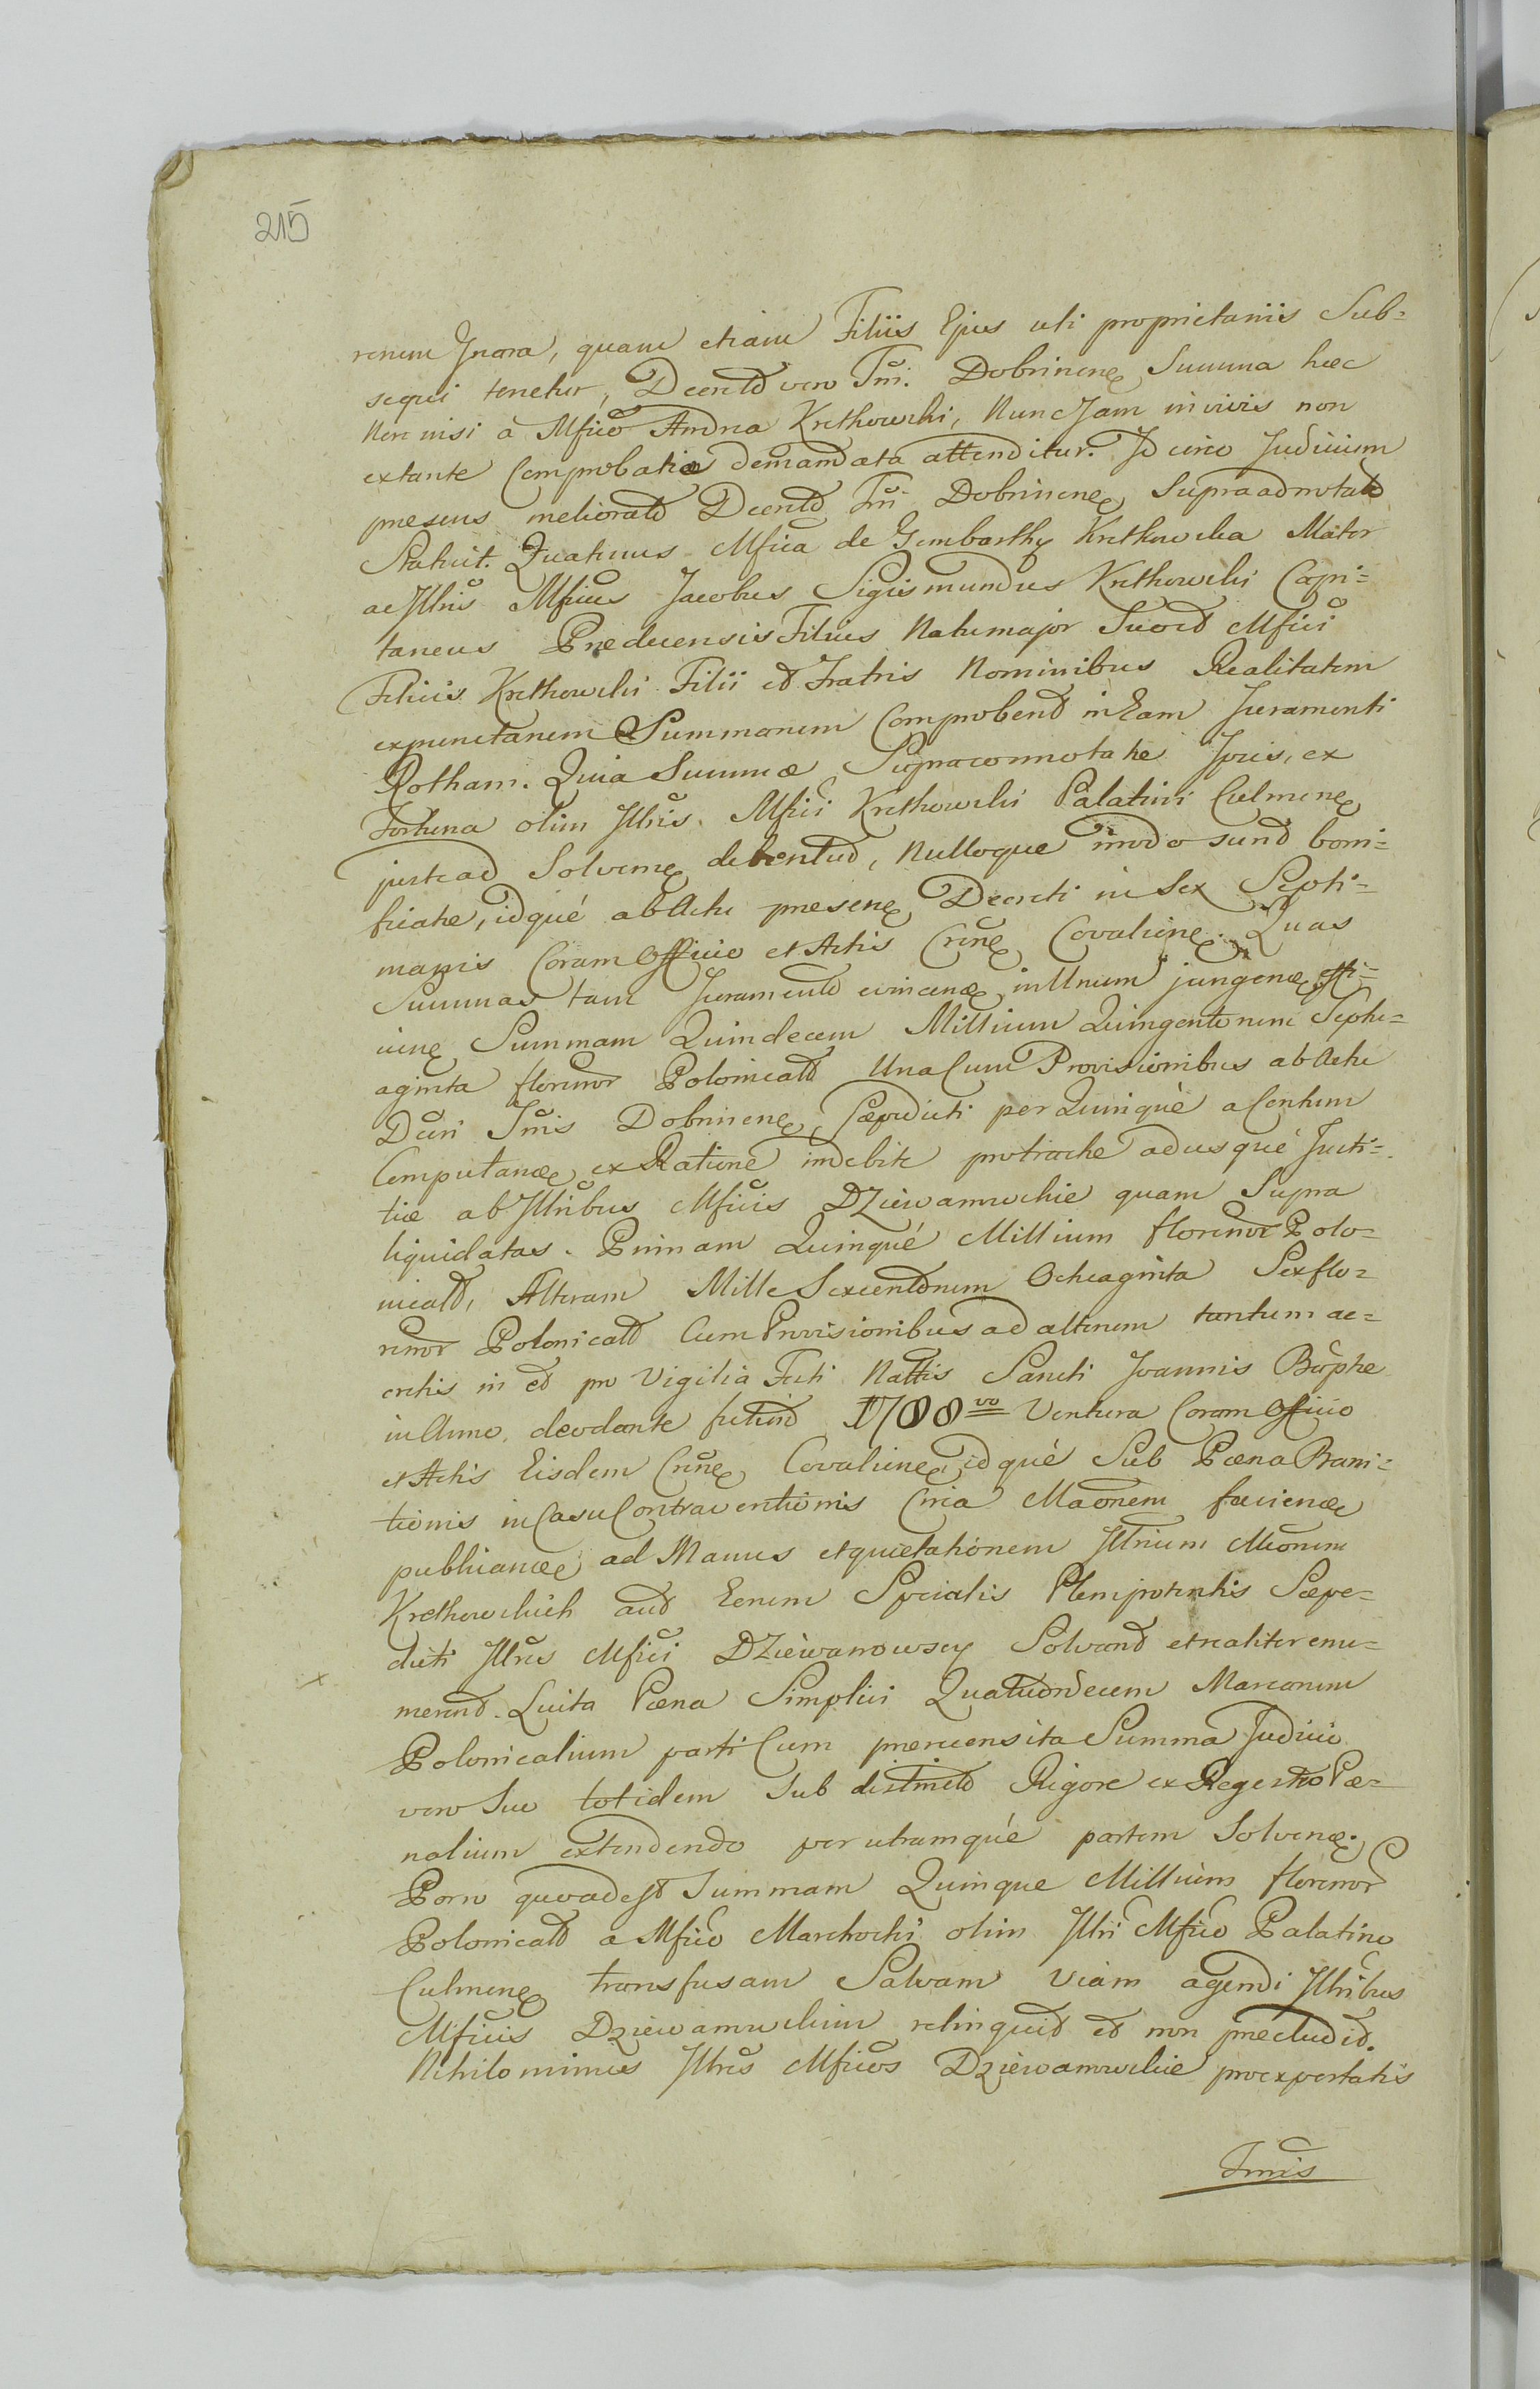 215
rerum Jurora, quam etiam Filiis Ejus uti proprietariis Sub-
sequi tenetur, Decreto vero Tni. Dobrinen Summa hæc
Non nisi à Mfico Andrea Krethowski, Nunc Jam in vivis non
extante Comprobatia demandata attenditur. Id circo Judicium
presens meliorato Decreto Tni Dobrinen, Supraadnotato
Statuit. Quatenus Mfica de Gembarthy Krethowska Mater
ac Jllris Mficus Jacobus Sigismundus Krethowski Capi-
taneus Predecensis Filius Natu major Suo et Mfici
Felicis Krethowski Filii et Fratris Nominibus Realitatem
expunctarum Summarum Comprobend in Eam Juramenti
Rotham. Quia Summæ Supraconnotatæ Ipsis, ex
Fortuna olim Jllris Mfici Krethowski Palatini Culmen
juste ad Solven debentur, Nulloque modo sunt boni-
ficatæ, idqué ab Actu presen Decreti in Sex Septi-
manis Coram Officio et Actis Cren Covalien. Quas
Summas tam Juramento evincen in Unum jungen effi-
cien Summam Quindecem Millium Quingentorum Septu-
aginta floreno Polonicalt Una Cum Provisionibus ab Actu
Dcri Tnis Dobrinen, Sæpedicti per Quinquè a Centum
Computan ex Ratione indebite protractæ adusqué Justi-
tiæ ab Jllribus Mficis Dziewanowskie quam Supra
liquidatas. Primam Quinqué Millium floreno Polo-
nicalt, Alteram Mille Sexcentorum Octuaginta Sex flo-
reno Polonicalt Cum Provisionibus ad alterum tantum ac-
cretis in et pro Vigilia Festi Nattis Sancti Joannis Baptæ
in Anno deodante futuro 1788vo Ventura Coram Officio
et Actis Eisdem Cren Covalien, idqué Sub Pœna Bani-
tionis in Casu Contraventionis Circa Maonem facien
publican ad Manus et quietationem Jllrium Mcorum
Krethowskich aut Eorum Specialis Plenipotentis Sæpe-
dicti Jllres Mfici Dziewanowscy Solvant et realiter enu-
merent. Luita Pœna Simplici Quatuordecem Marcarum
Polonicalium parti Cum prerecensita Summa Judicio
vero Suo totidem Sub districto Rigore ex Regestro Pœ-
nalium extendendo per utramqué partem Solven.
Porro quoad est Summam Quinque Millium floreno
Polonicalt a Mfico Marchocki olim Jllri Mfico Palatino
Culmen transfusam Salvam Viam agendi Jllribus
Mficis Dziewanowskim relinquit et non precludit.
Nihilominus Jllres Mficos Dziewanowskie pro expostatis
Tnris